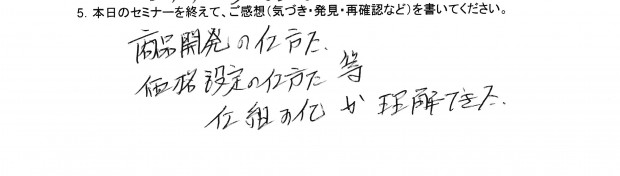 5. 本日のセミナーを終えて、ご感想（気づき・発見・再確認など）を書いてください。
商品開発の仕方た、
価格設定の仕方た 等
仕組の化 が 理解できた.